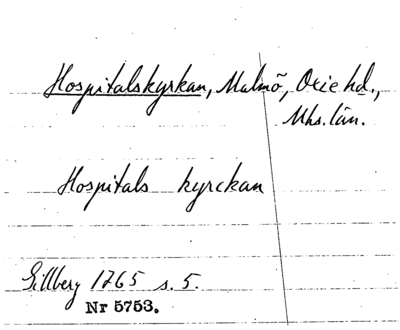 Hospitalskyrkan, Malmö, Oxie hd.,
Mhs. län.
Hospitals kyrckan
Gillberg 1765 s. 5.
Nr 5753.